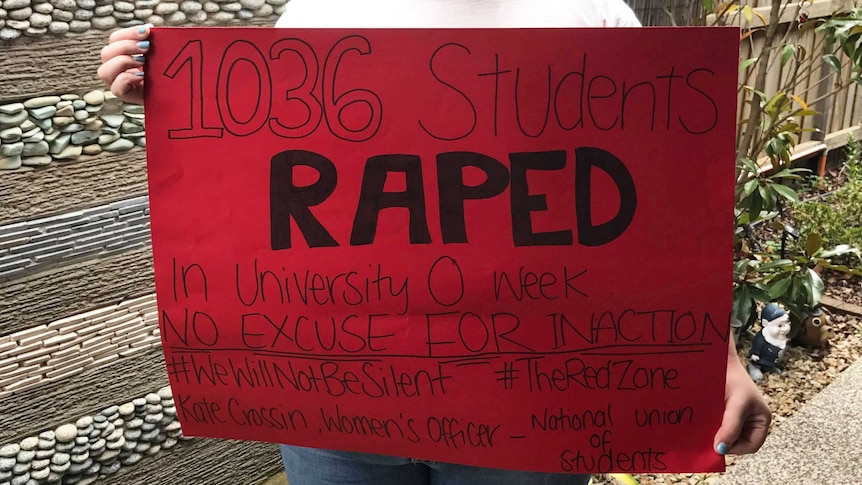 1036 Students
RAPED
In University O Week
NO EXCUSE FOR INACTION
#WeWillNotBeSilent #TheRedZone
Kate Crossin, Women's Officer - National Union
of
Students